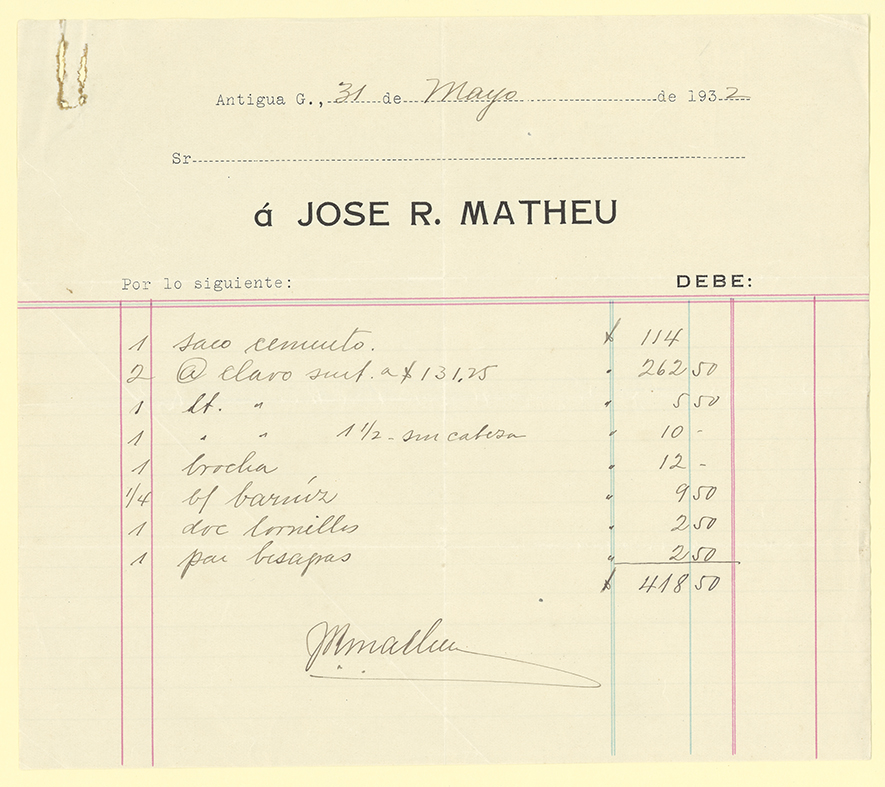 Antigua G., 31 de Mayo de 1932
Sr
á JOSE R. MATHEU
Por lo siguiente: DEBE:
1 saco cemento. $ 114
2 @ clavo surt. a $131,25 " 262 50
1 lt. " " 5 50
1 " " 1 1/2 - sin cabeza " 10 -
1 brocha " 12 -
1/4 bf barníz " 9 50
1 doc tornillos " 2 50
1 par bisagras " 2 50
$ 418 50
JRMatheu